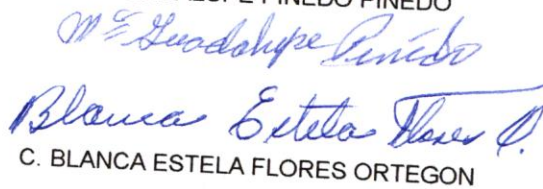 PINEDO PINEDO
Mª Guadalupe Pinedo
Blanca Estela Flores O.
C. BLANCA ESTELA FLORES ORTEGON